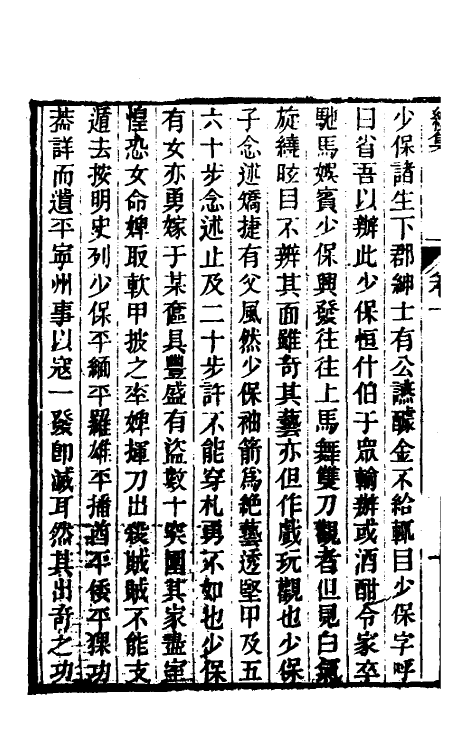 少保諸生下郡紳士有公讌醵金不給輒目少保字呼
曰省吾以辦此少保恒什伯于眾輸辦或酒酣令家卒
馳馬娛賓少保興發往往上馬舞雙刀觀者但見白氣
旋繞眩目不辨其面雖奇其藝亦但作戲玩觀也少保
子念述矯捷有父風然少保袖箭為絶藝透堅甲及五
六十步念述止及二十步許不能穿札勇不如也少保
有女亦勇嫁于某奩具豐盛有盜數十突圍其家盡室
惶恐女命婢取軟甲披之率婢揮刀出殺賊賊不能支
遁去按明史列少保平緬平羅雄平播酋平倭平猓功
葢詳而遺平寧州事以寇一發卽滅耳然其出奇之功
卷一